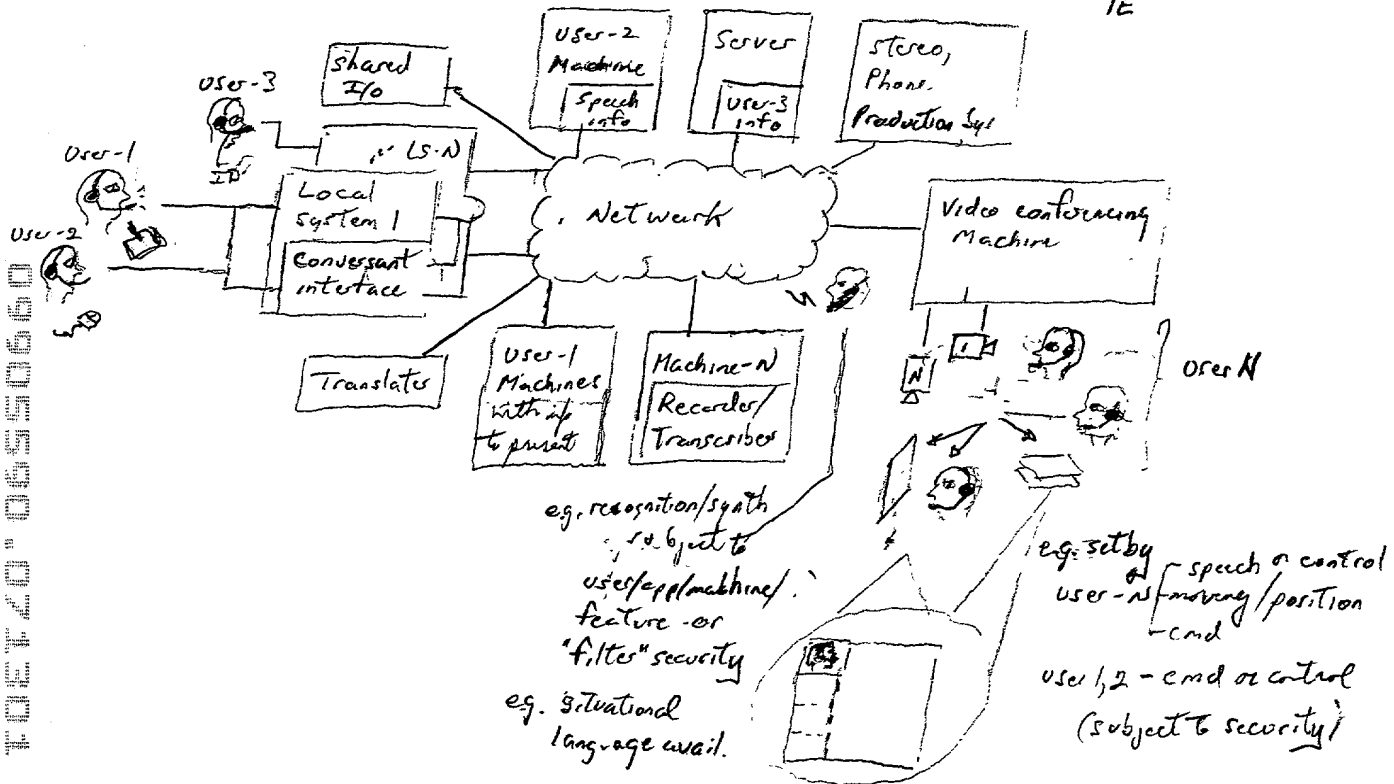 1E
User-3
shared
I/O
User-2
Machine
Speech
info
Server
User-3
info
stereo,
Phone.
Production Sys
User-1
ID
LS-N
Local
system 1
Conversant
interface
User-2
Network
Video conferencing
Machine
Translator
User-1
Machines
with info
to present
Machine-N
Recorder/
Transcriber
N
1
User N
e.g. recognition/synth
subject to
user/app/machine/
feature -or
"filter" security
e.g. situational
language avail.
e.g. set by
user-N
speech or control
moving/position
cmd
user 1,2 - cmd or control
(subject to security)